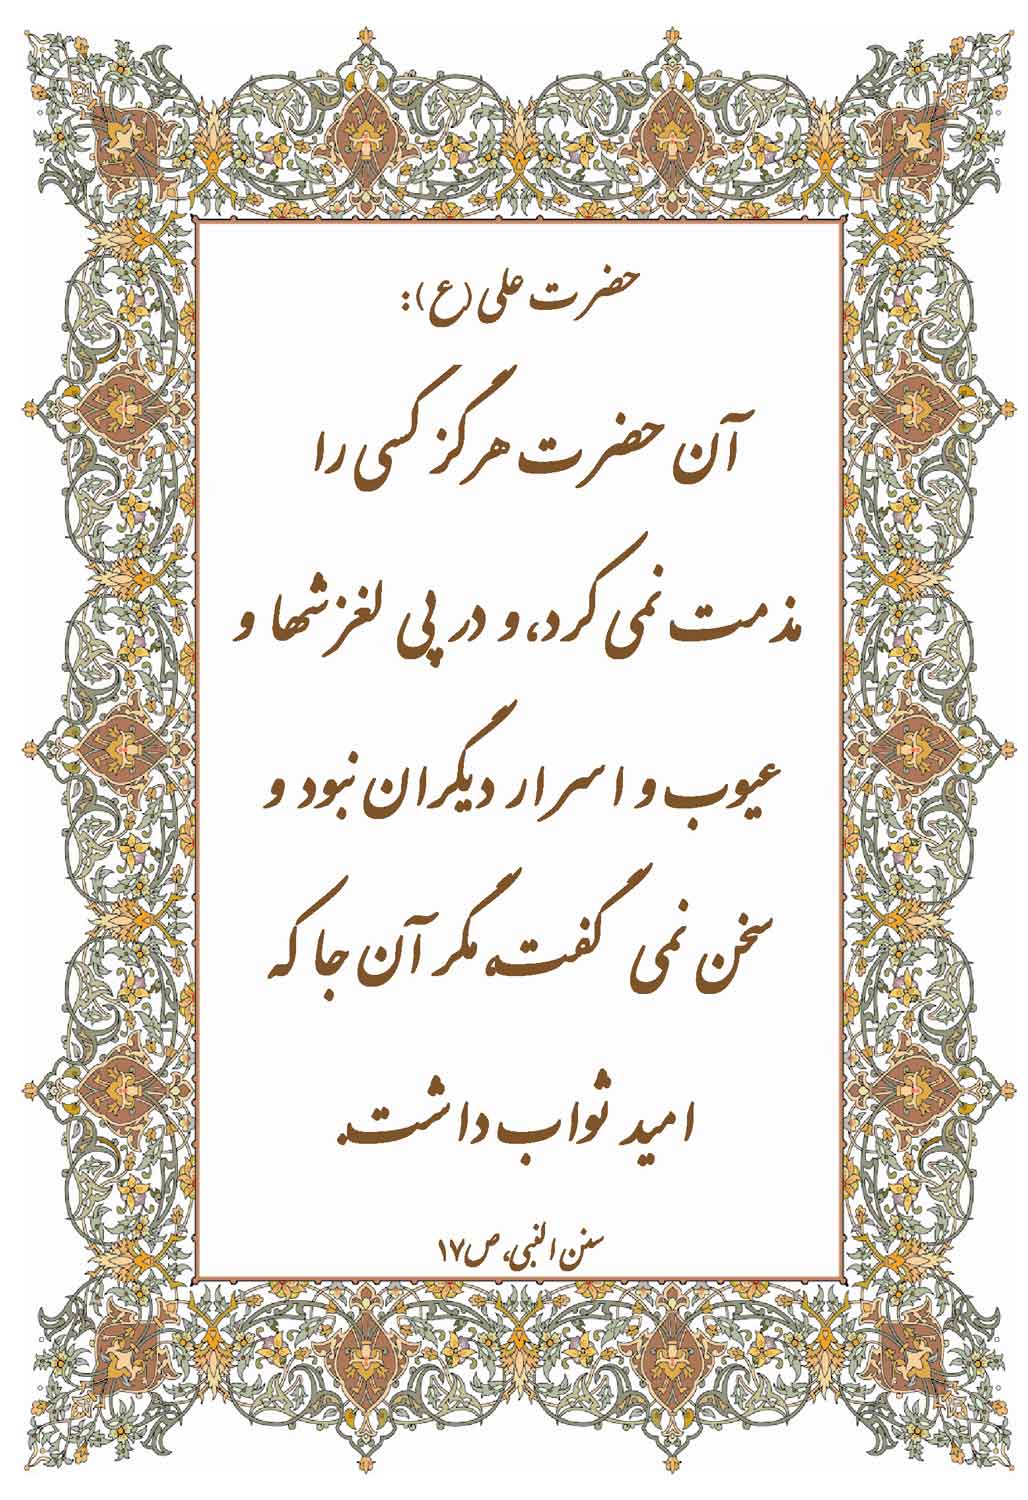 حضرت علی (ع):
آن حضرت هرگز کسی را
مذمت نمی کرد، و در پی لغزشها و
عیوب و اسرار دیگران نبود و
سخن نمی گفت، مگر آن جا که
امید ثواب داشت.
سنن النبی، ص۱۷